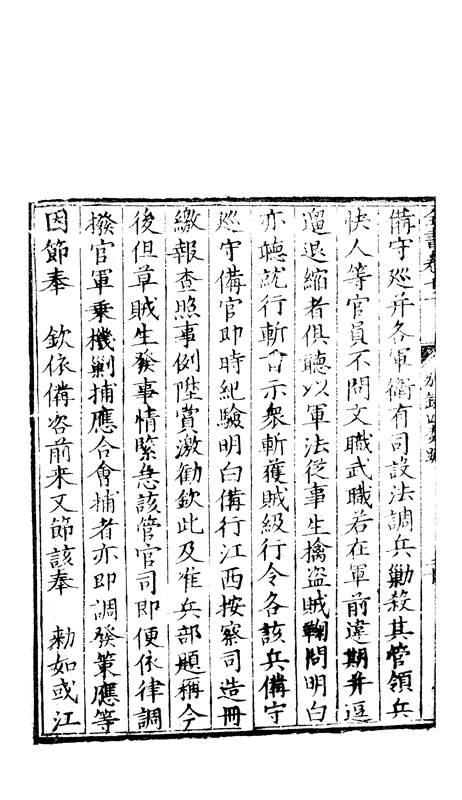 備守廵并各軍衛有司設法調兵勦殺其管領兵
快人等官員不問文職武職若在軍前違期并逗
遛退縮者俱聽以軍法從事生擒盗賊鞠問明白
亦聽就行斬首示衆斬獲賊級行令各該兵備守
廵守備官即時紀驗明白備行江西按察司造冊
繳報查照事例陞賞激勸欽此及准兵部題稱今
後但草賊生發事情緊急該管官司即便依律調
撥官軍乗機勦捕應合會捕者亦即調發策應等
因節奉　欽依備咨前来又節該奉　勅如或江